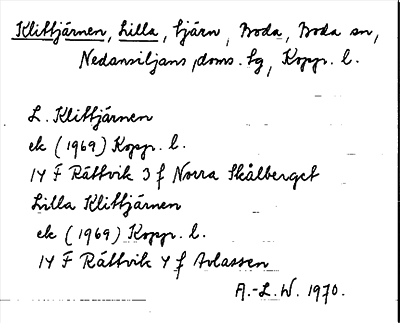 Klittjärnen, Lilla, tjärn, Boda, Boda sn,
Nedansiljans doms. tg, Kopp. l.
L. Klittjärnen
ek (1969) Kopp. l.
14 F Rättvik 3 f Norra Skålberget
Lilla Klittjärnen
ek (1969) Kopp. l.
14 F Rättvik 4 f Avlassen
A.-L. W. 1970.